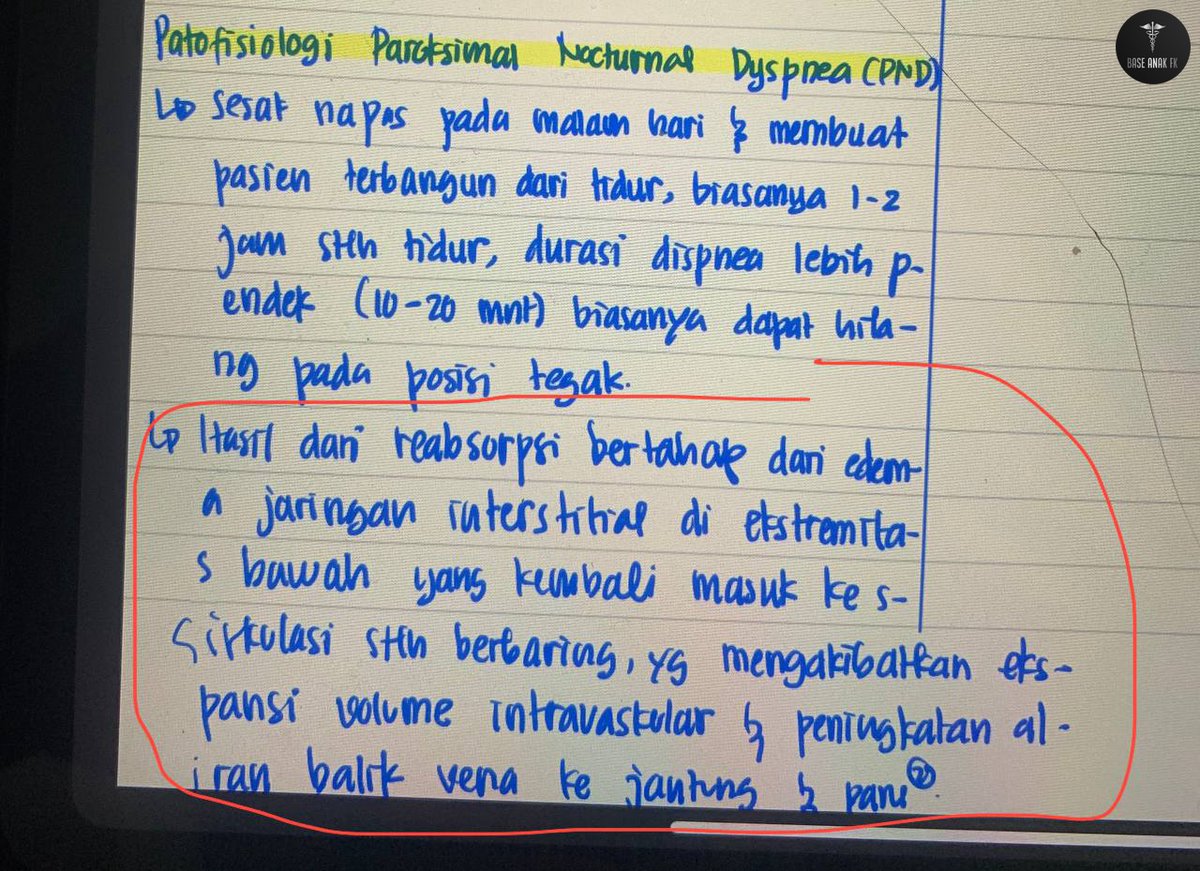 Patofisiologi Paroksimal Nocturnal Dyspnea (PND)
BASE ANAK FK
↳ Sesak napas pada malam hari & membuat
pasien terbangun dari tidur, biasanya 1-2
jam stlh tidur, durasi dispnea lebih p-
endek (10-20 mnt) biasanya dapat hila-
ng pada posisi tegak.
↳ Hasil dari reabsorpsi bertahap dari edem-
a jaringan interstitial di ekstremita-
s bawah yang kembali masuk ke s-
sirkulasi stlh berbaring, yg mengakibatkan eks-
pansi volume intravaskular & peningkatan al-
iran balik vena ke jantung & paru②.